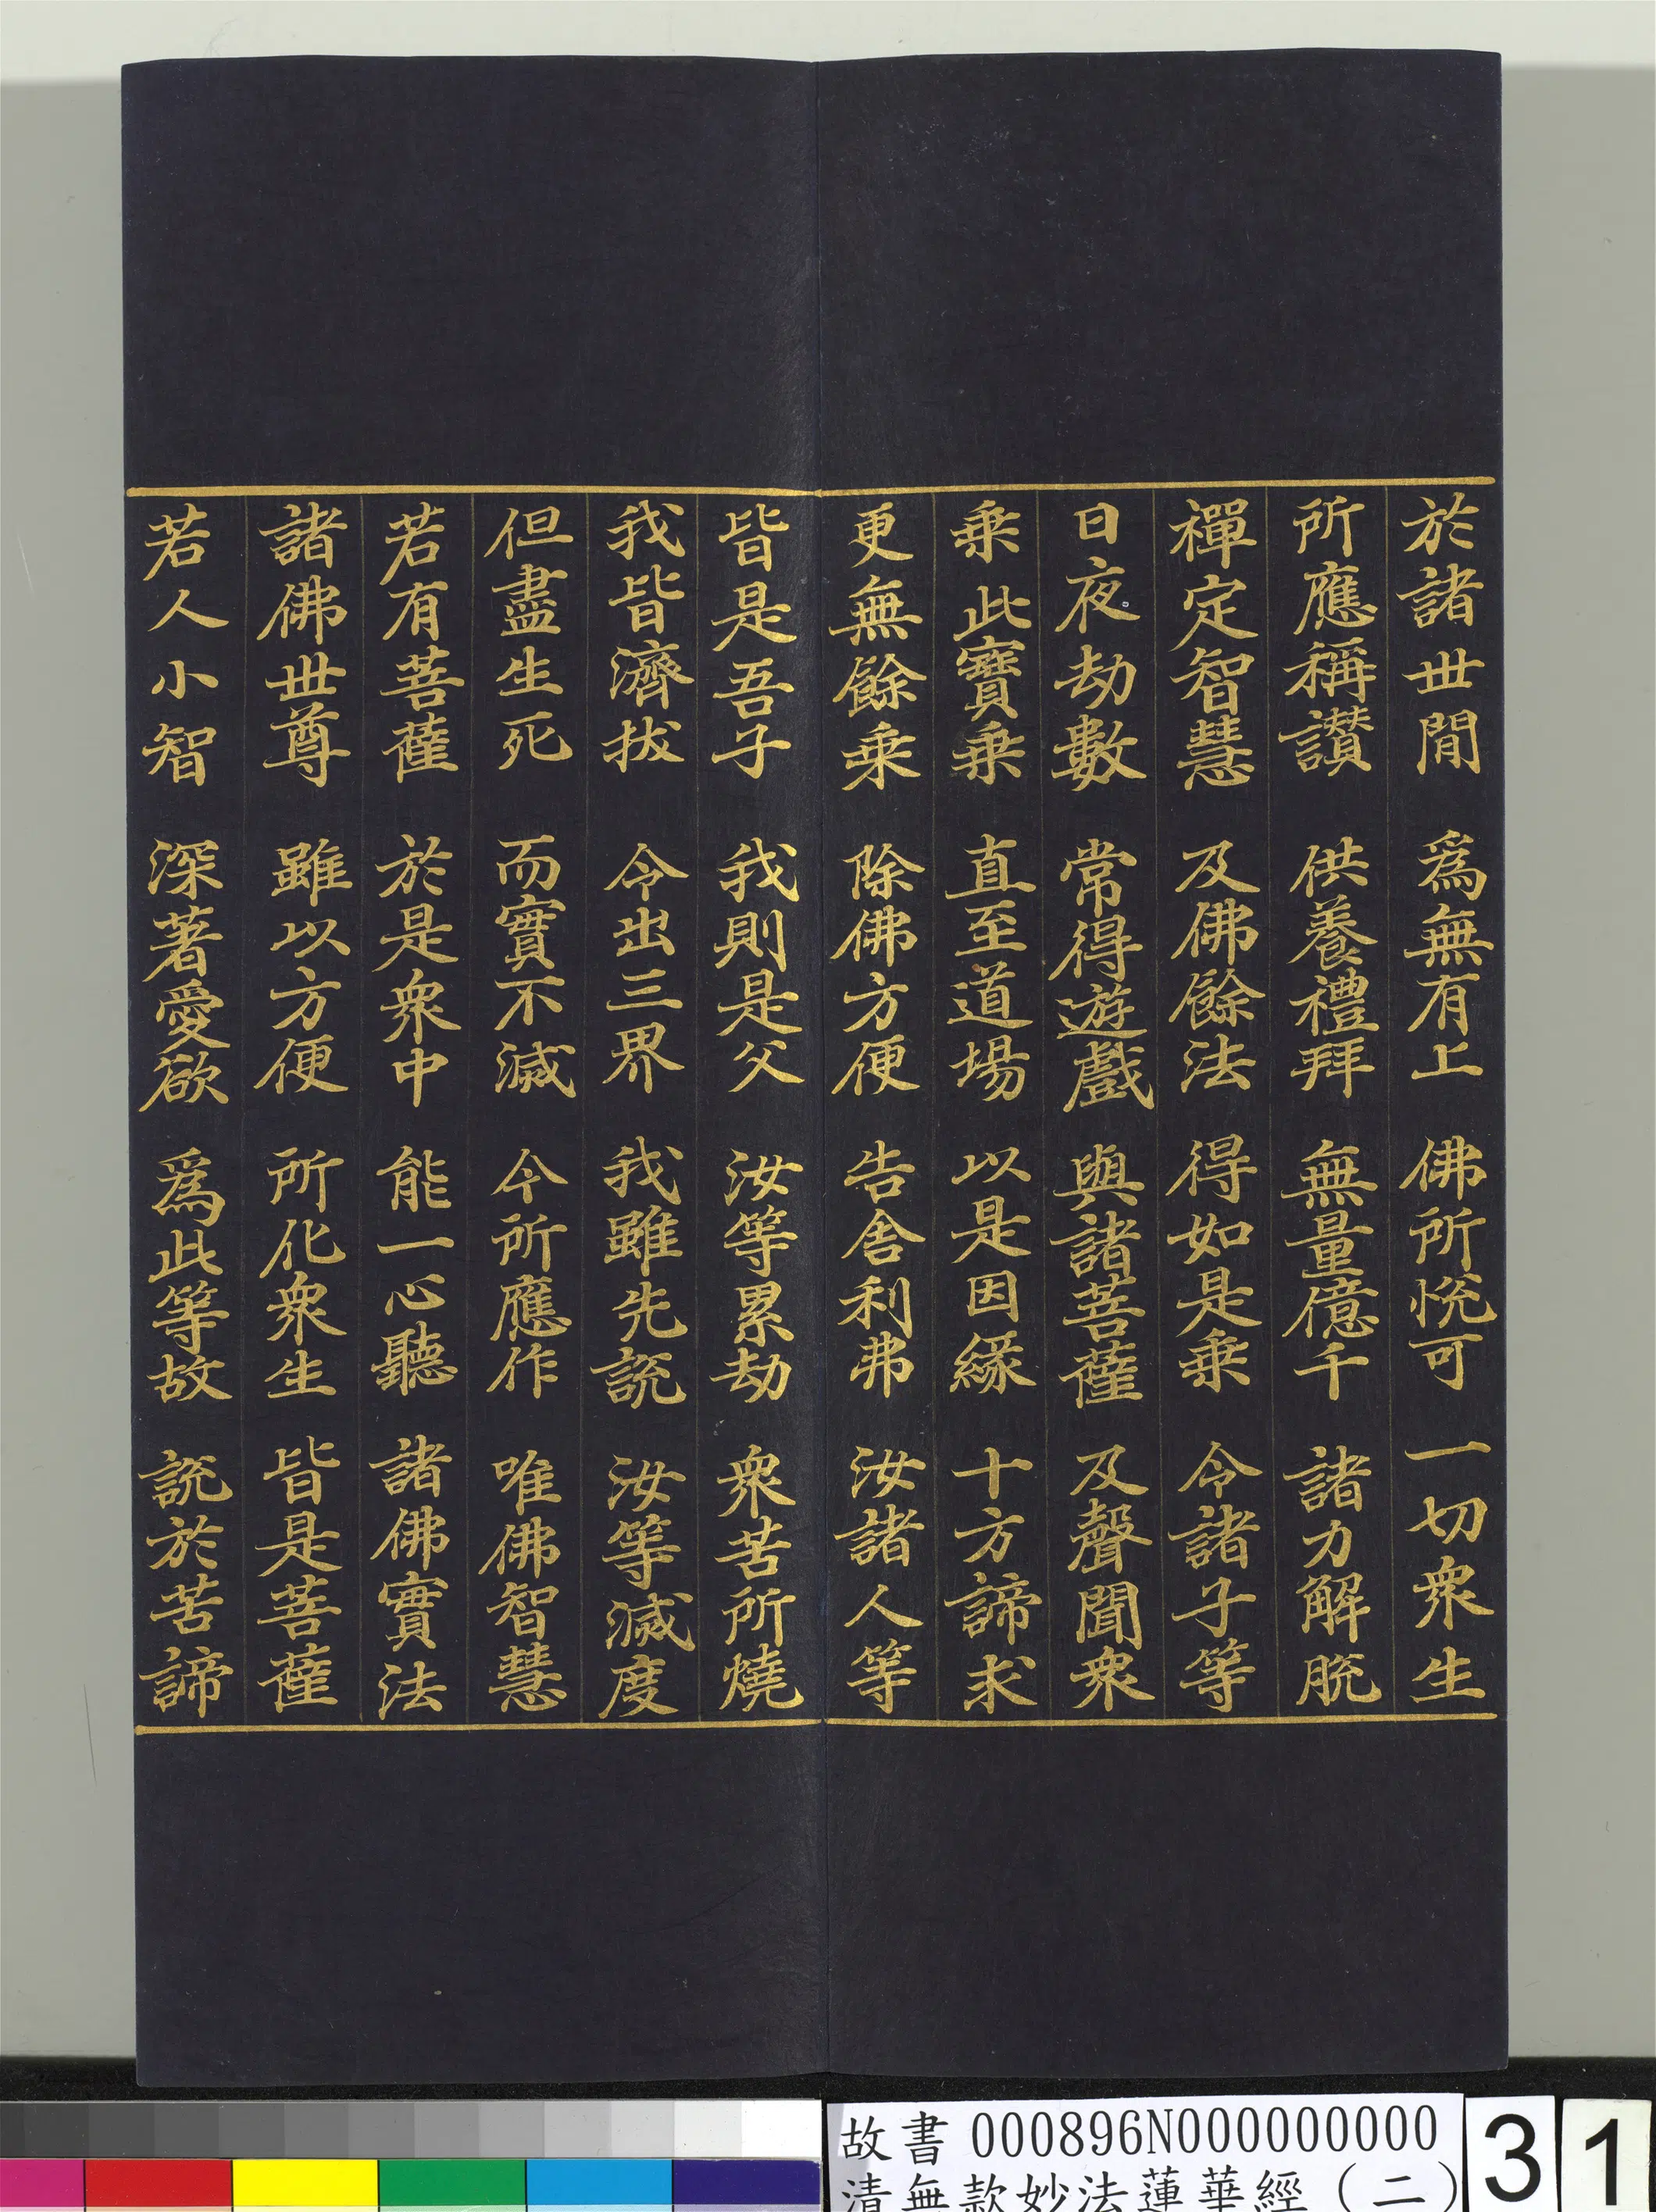 於諸世閒　爲無有上　佛所悅可　一切衆生
所應稱讃　供養禮拜　無量億千　諸力解脫
禪定智慧　及佛餘法　得如是乗　令諸子等
日夜劫數　常得遊戲　與諸菩薩　及聲聞衆
乗此寶乗　直至道場　以是因緣　十方諦求
更無餘乗　除佛方便　告舍利弗　汝諸人等
皆是吾子　我則是父　汝等累劫　衆苦所燒
我皆濟拔　令出三界　我雖先說　汝等滅度
但盡生死　而實不滅　今所應作　唯佛智慧
若有菩薩　於是衆中　能一心聽　諸佛實法
諸佛世尊　雖以方便　所化衆生　皆是菩薩
若人小智　深著愛欲　爲此等故　說於苦諦
故書 000896N000000000
清無款妙法蓮華經（二）
31